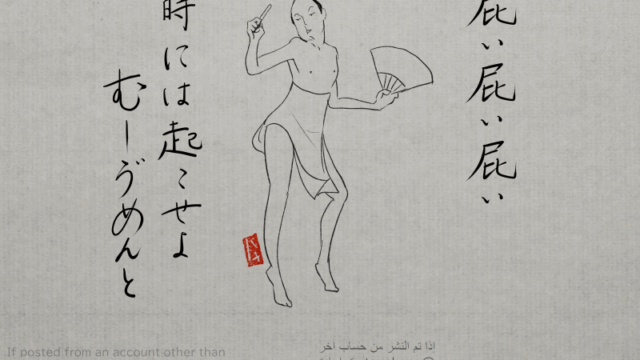 屁い屁い屁い
時には起こせよ
むーゔめんと
If posted from an account other than
اذا تم النشر من حساب آخر